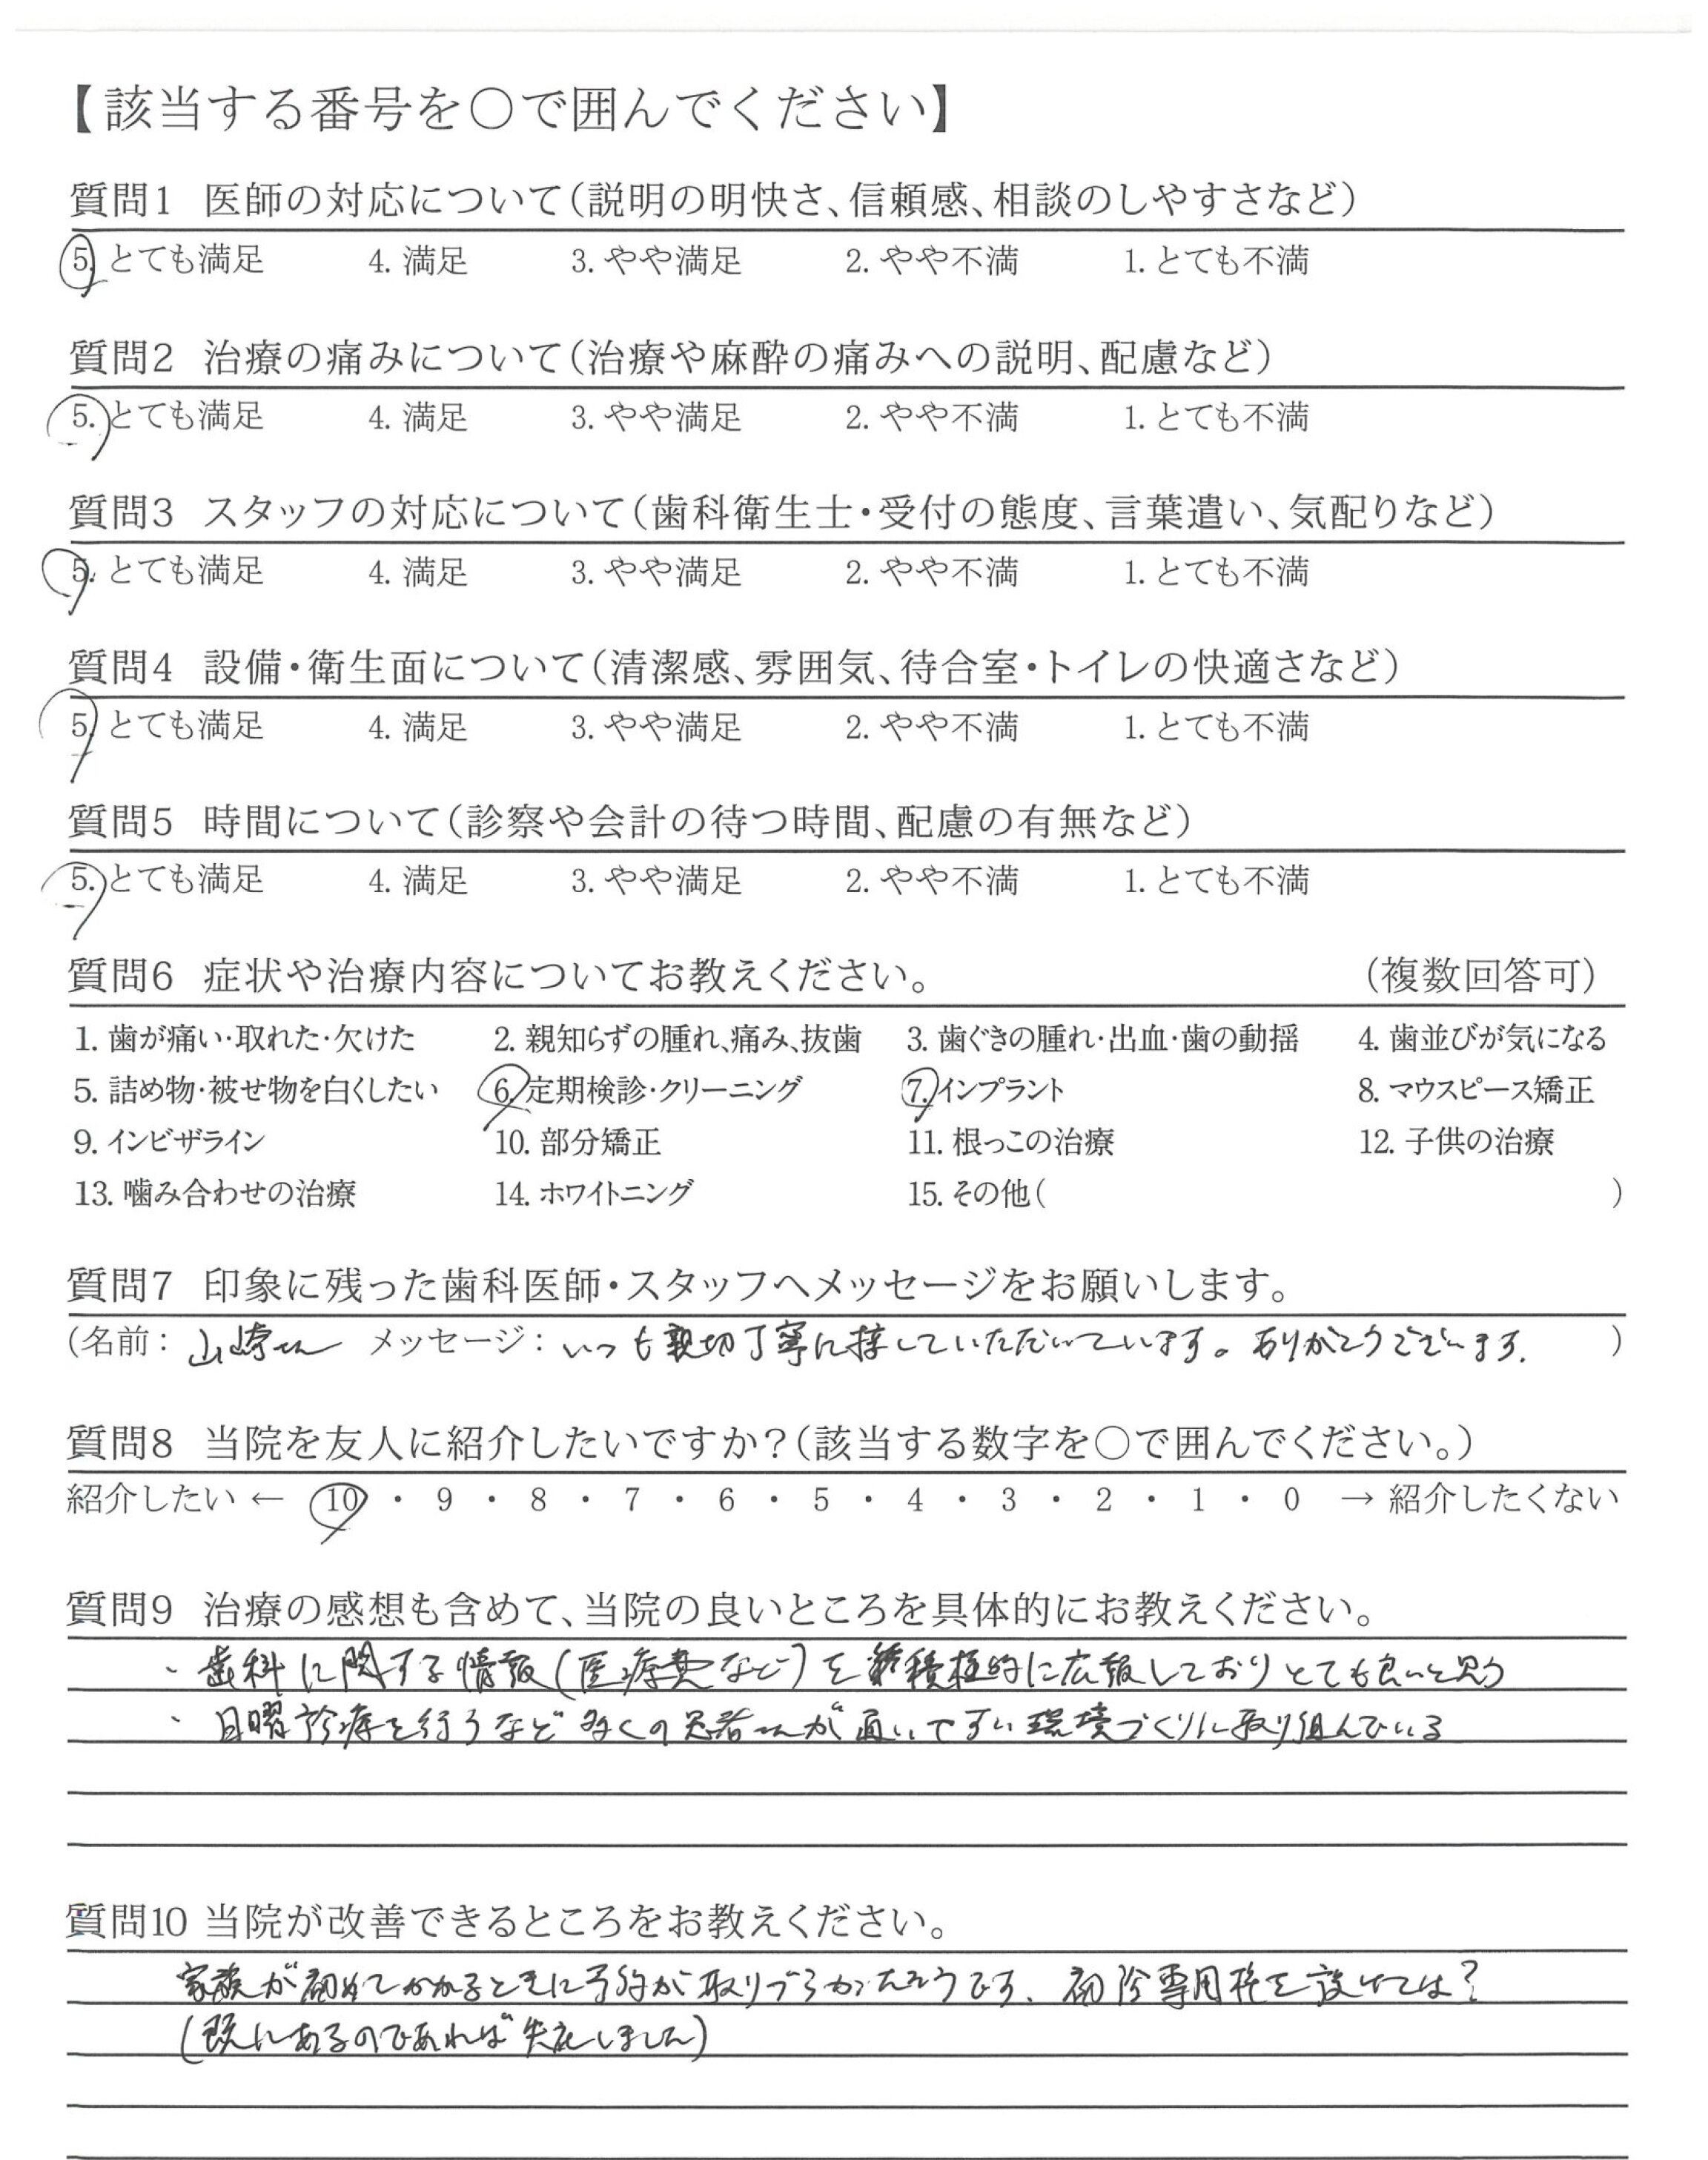 【該当する番号を○で囲んでください】
質問1 医師の対応について(説明の明快さ、信頼感、相談のしやすさなど)
5. とても満足 4. 満足 3. やや満足 2. やや不満 1. とても不満
質問2 治療の痛みについて(治療や麻酔の痛みへの説明、配慮など)
5. とても満足 4. 満足 3. やや満足 2. やや不満 1. とても不満
質問3 スタッフの対応について(歯科衛生士・受付の態度、言葉遣い、気配りなど)
5. とても満足 4. 満足 3. やや満足 2. やや不満 1. とても不満
質問4 設備・衛生面について(清潔感、雰囲気、待合室・トイレの快適さなど)
5. とても満足 4. 満足 3. やや満足 2. やや不満 1. とても不満
質問5 時間について(診察や会計の待つ時間、配慮の有無など)
5. とても満足 4. 満足 3. やや満足 2. やや不満 1. とても不満
質問6 症状や治療内容についてお教えください。 (複数回答可)
1. 歯が痛い・取れた・欠けた 2. 親知らずの腫れ、痛み、抜歯 3. 歯ぐきの腫れ・出血・歯の動揺 4. 歯並びが気になる
5. 詰め物・被せ物を白くしたい 6. 定期検診・クリーニング 7. インプラント 8. マウスピース矯正
9. インビザライン 10. 部分矯正 11. 根っこの治療 12. 子供の治療
13. 噛み合わせの治療 14. ホワイトニング 15. その他( )
質問7 印象に残った歯科医師・スタッフへメッセージをお願いします。
(名前: 山崎さん メッセージ: いつも親切丁寧に接していただいています。ありがとうございます. )
質問8 当院を友人に紹介したいですか?(該当する数字を○で囲んでください。)
紹介したい ← 10 ・ 9 ・ 8 ・ 7 ・ 6 ・ 5 ・ 4 ・ 3 ・ 2 ・ 1 ・ 0 → 紹介したくない
質問9 治療の感想も含めて、当院の良いところを具体的にお教えください。
・歯科に関する情報(医療費など)を積極的に広報しておりとても良いと思う
・日曜診療を行うなど多くの患者さんが通いやすい環境づくりに取り組んでいる
質問10 当院が改善できるところをお教えください。
家族が初めてかかるときに予約が取りづらかったそうです、初診専用枠を設けては?
(既にあるのであれば失礼しました)